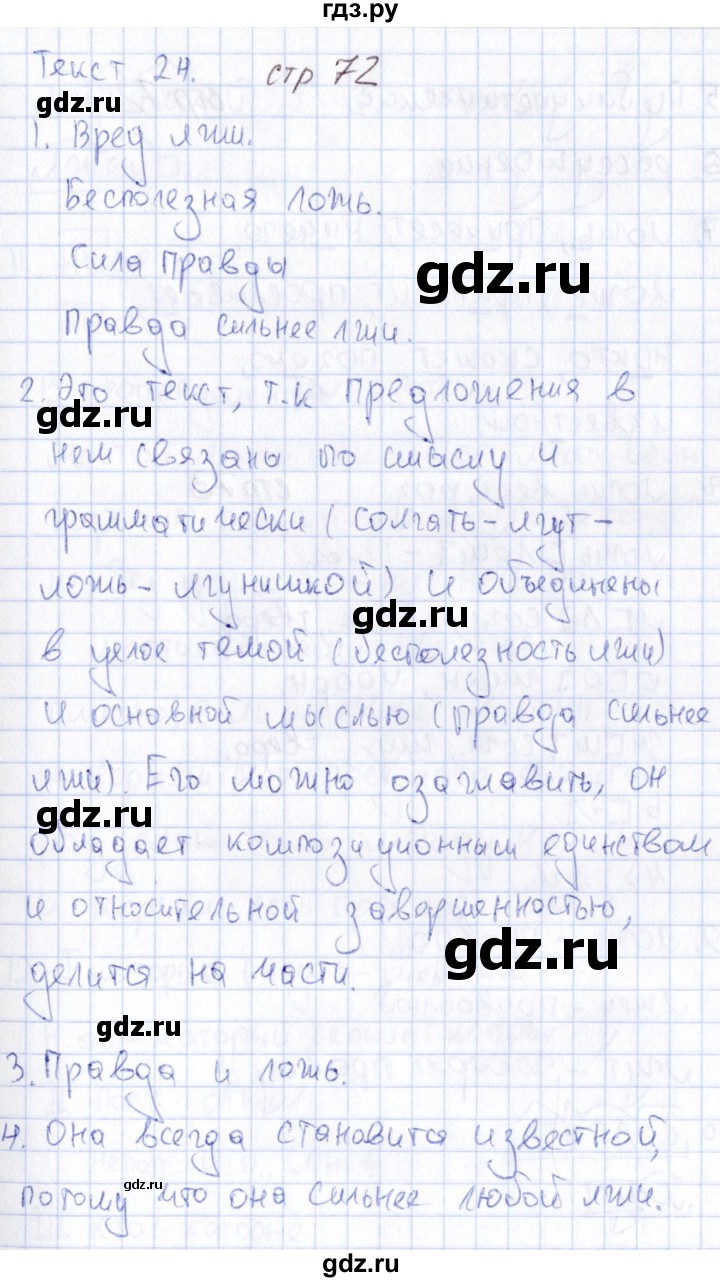 гдз.ру
Текст 24. стр 72
gdz.ru
1. Вред лжи.
Бесполезная ложь.
Сила правды
gdz.ru
Правда сильнее лжи.
2. Это текст, т.к предложения в
gdz.ru
нем связана по смыслу и
грамматически (солгать - лгут -
ложь - лгунишкой) и объединены
gdz.ru
в целое темой (бесполезность лжи)
и основной мыслью (правда сильнее
лжи). Его можно озаглавить, он
gdz.ru
обладает композиционным единством
и относительной завершенностью,
gdz.ru
делится на части.
gdz.ru
3. Правда и ложь.
4. Она всегда становится известной,
gdz.ru
потому что она сильнее любой лжи.
gdz.ru